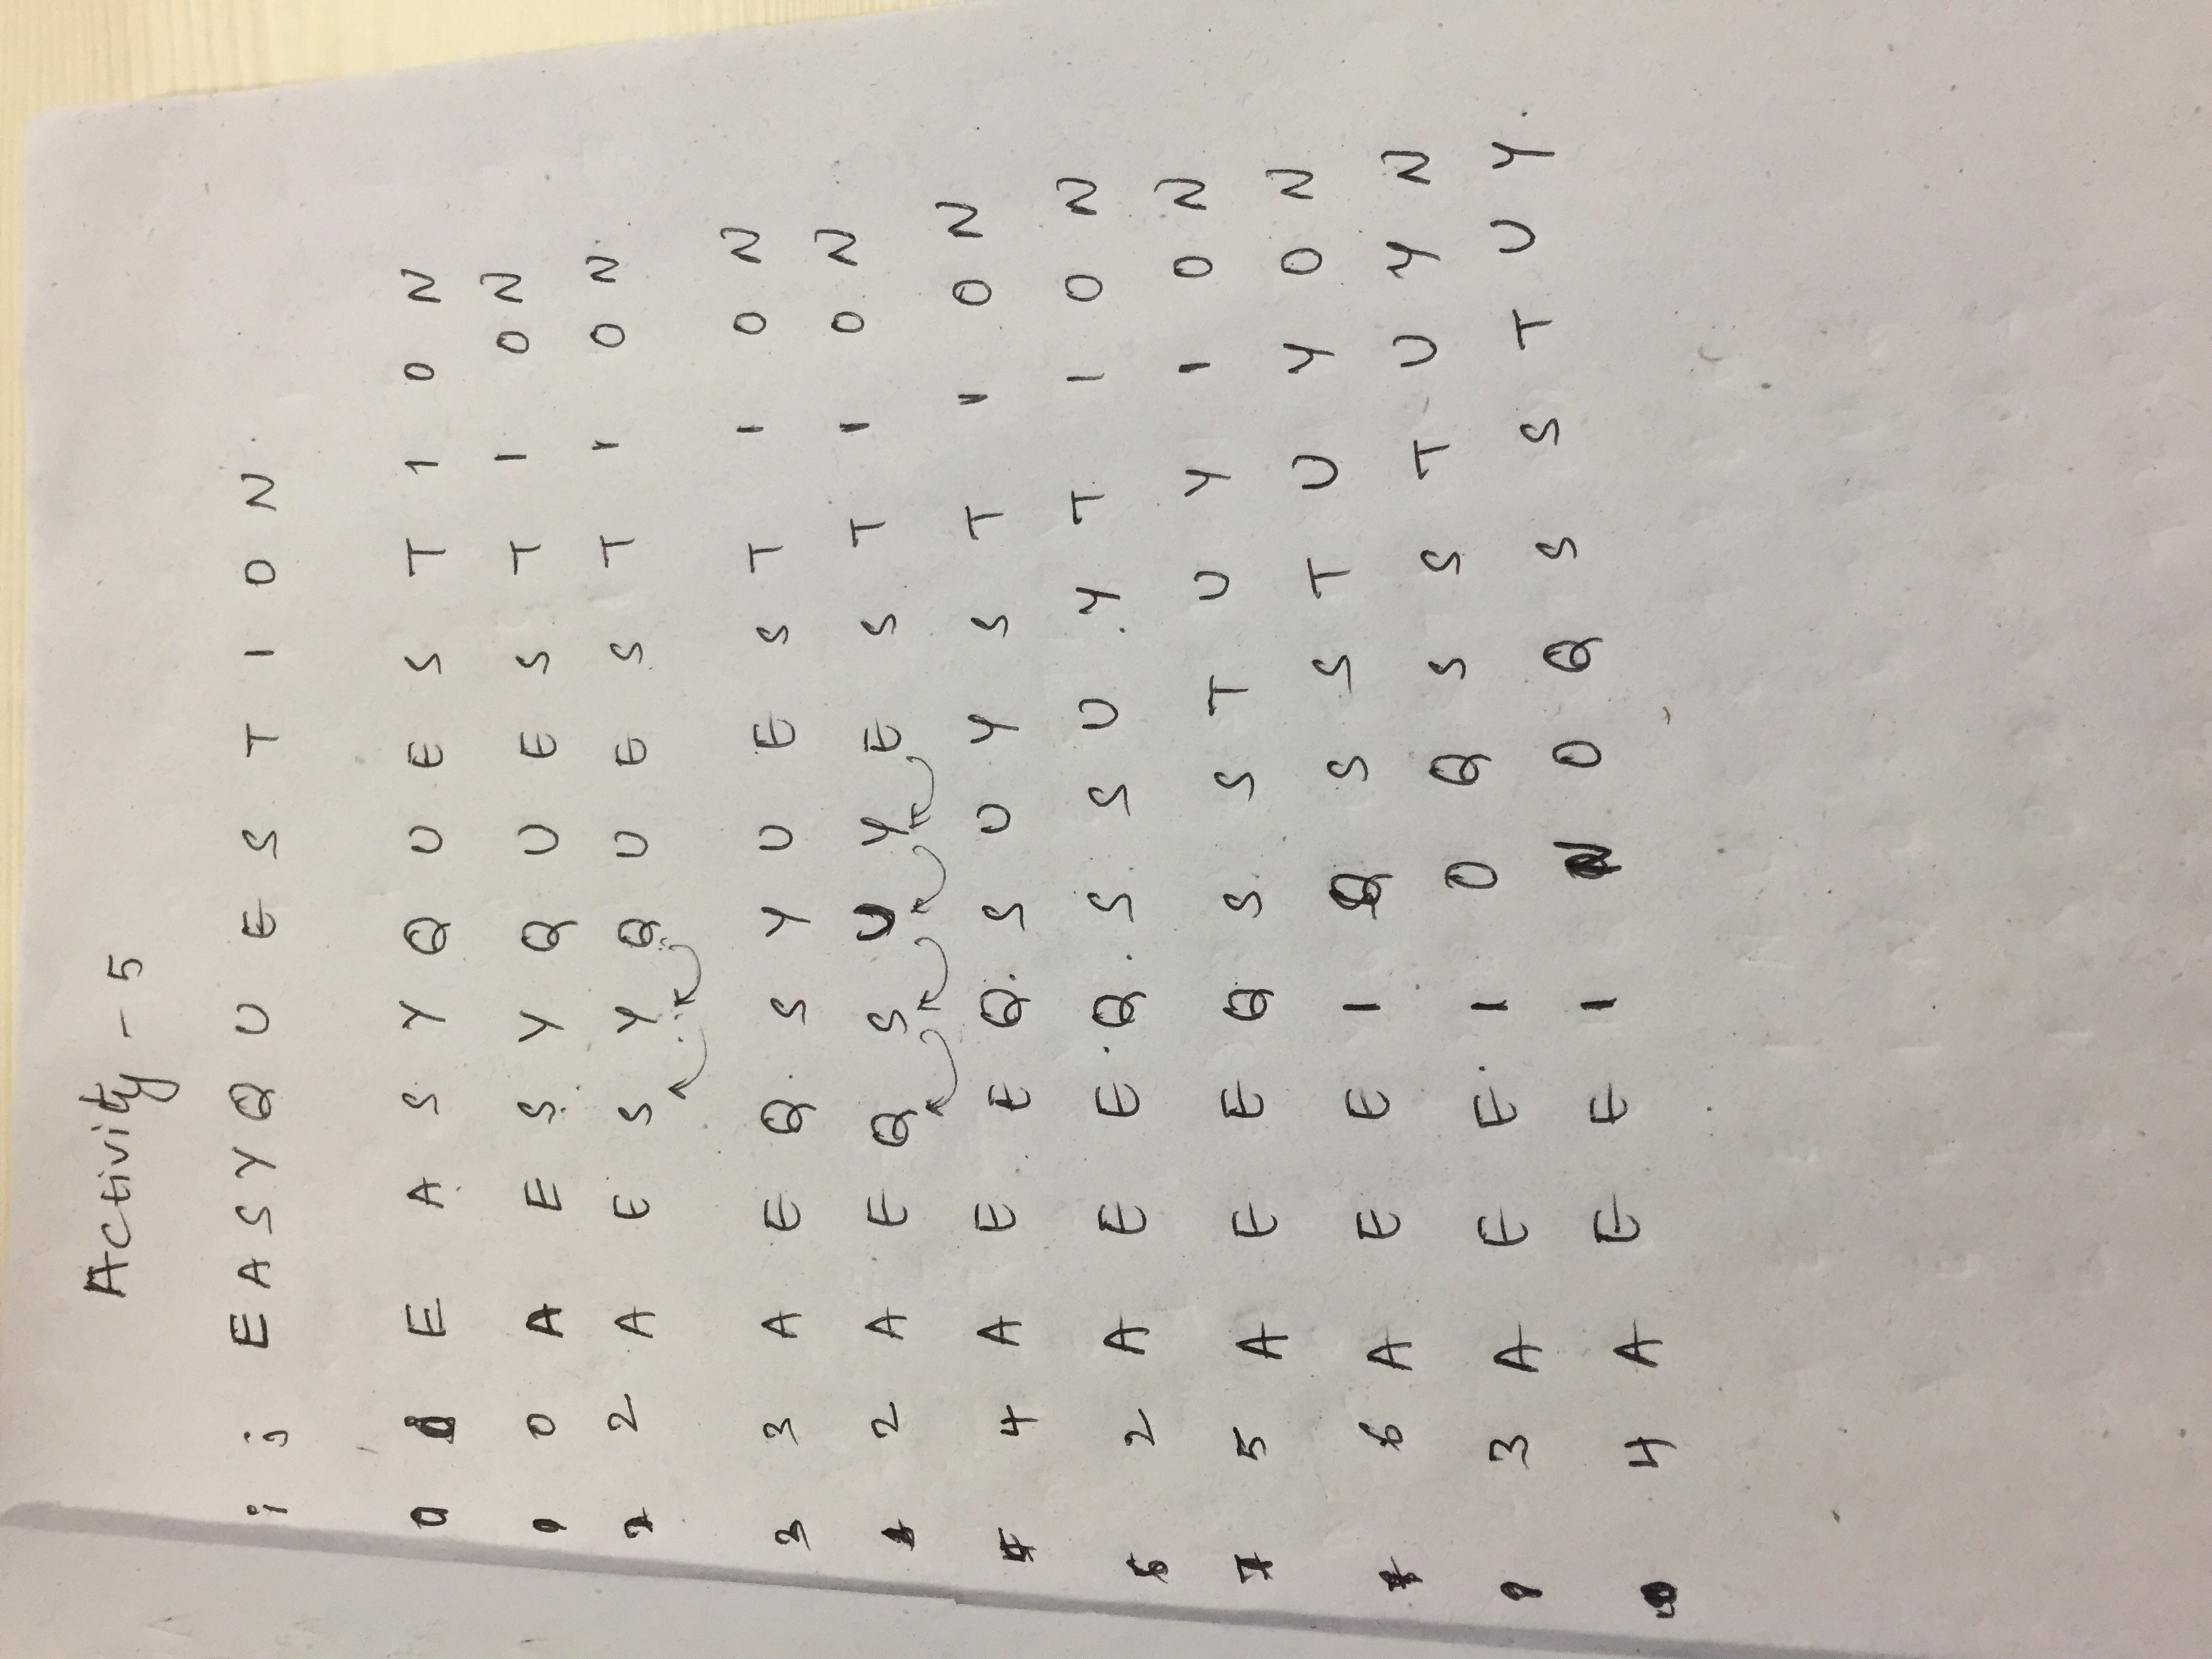 Activity - 5
i j E A S Y Q U E S T I O N
0 E A S Y Q U E S T I O N
0 A E S Y Q U E S T I O N
2 2 A E S Y Q U E S T I O N
3 3 A E Q S Y U E S T I O N
2 A E Q S U Y E S T I O N
4 A E E Q S U Y S T I O N
6 2 A E E Q S S U Y T I O N
7 5 A E E Q S S T U Y I O N
6 A E E I Q S S T U Y O N
3 A E E I O Q S S T U Y N
4 A E E I N O Q S S T U Y